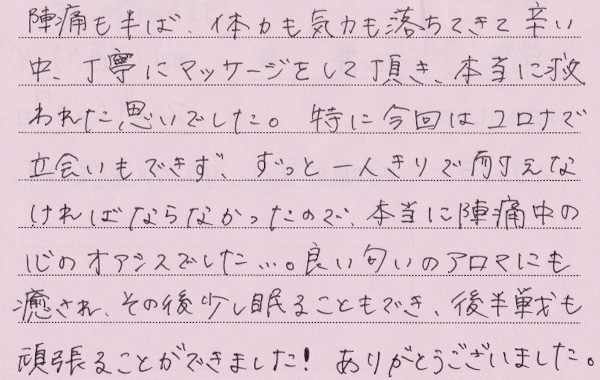 陣痛も半ば、体力も気力も落ちてきて辛い
中、丁寧にマッサージをして頂き、本当に救
われた思いでした。特に今回はコロナで
立会いもできず、ずっと一人きりで耐えな
ければならなかったので、本当に陣痛中の
心のオアシスでした…。良い匂いのアロマにも
癒され、その後少し眠ることもでき、後半戦も
頑張ることができました！ ありがとうございました。